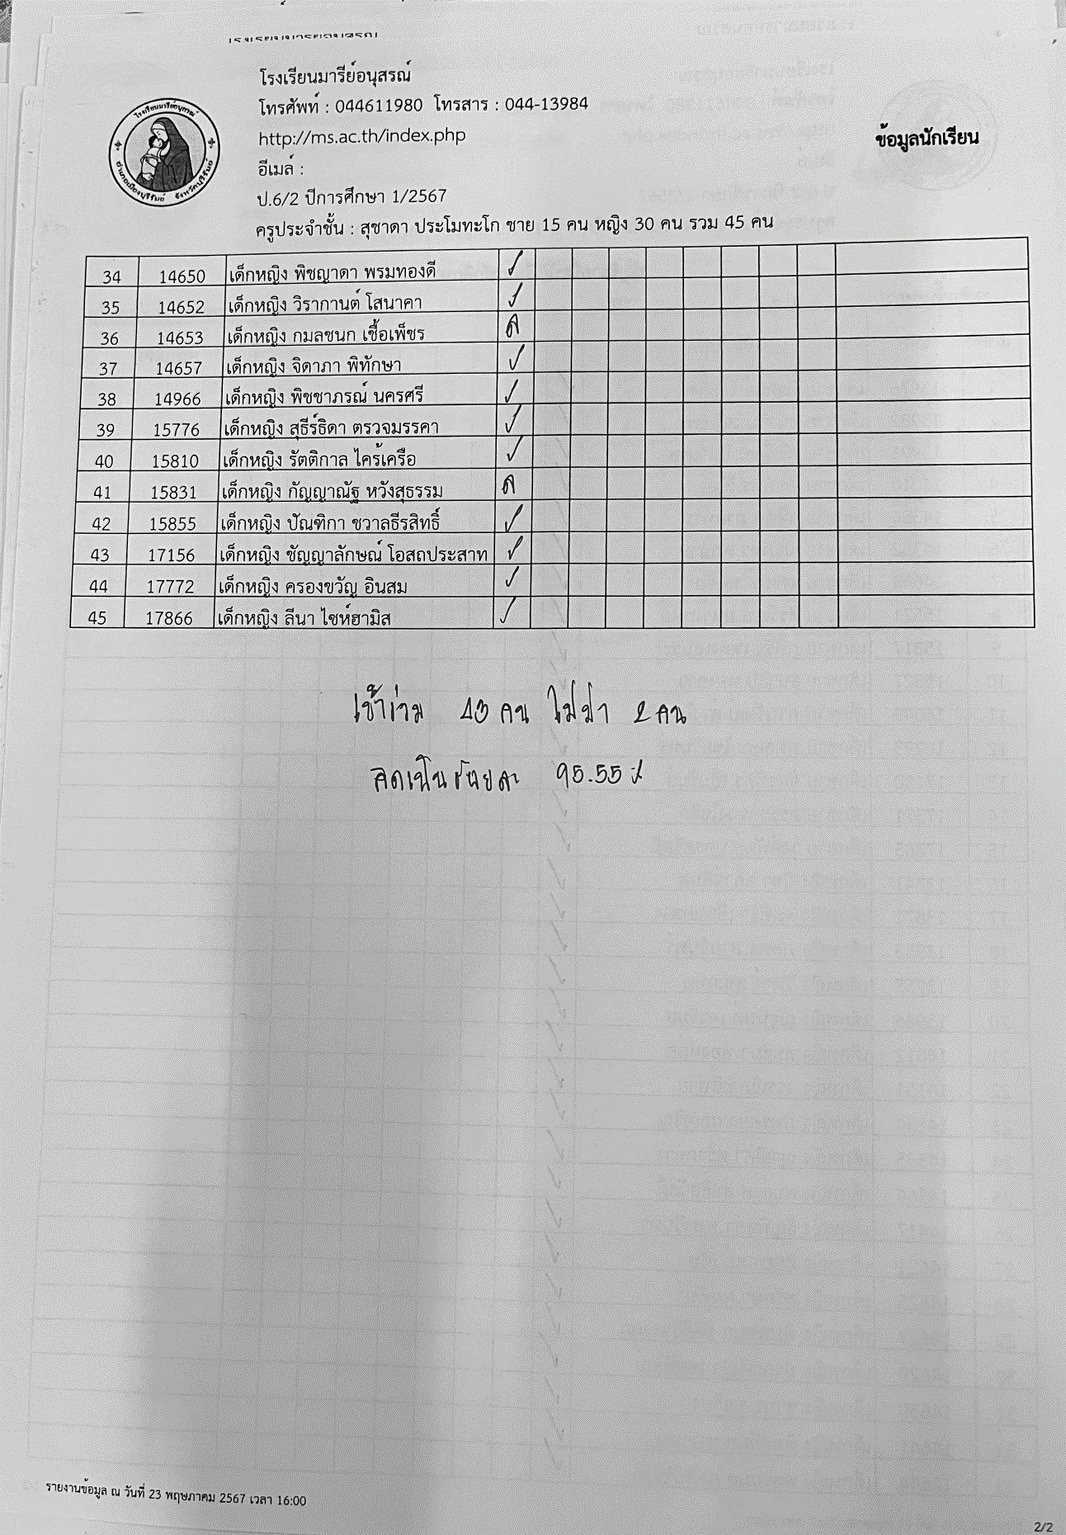 โรงเรียนมารีย์อนุสรณ์
โทรศัพท์ : 044611980 โทรสาร : 044-13984
http://ms.ac.th/index.php
อีเมล์ :
ป.6/2 ปีการศึกษา 1/2567
ครูประจำชั้น : สุชาดา ประโมทะโก ชาย 15 คน หญิง 30 คน รวม 45 คน
ข้อมูลนักเรียน
34 14650 เด็กหญิง พิชญาดา พรมทองดี ✓
35 14652 เด็กหญิง วิรากานต์ โสนาคา ✓
36 14653 เด็กหญิง กมลชนก เชื้อเพ็ชร ล
37 14657 เด็กหญิง จิดาภา พิทักษา ✓
38 14966 เด็กหญิง พิชชาภรณ์ นครศรี ✓
39 15776 เด็กหญิง สุธีร์ธิดา ตรวจมรรคา ✓
40 15810 เด็กหญิง รัตติกาล ไคร้เครือ ✓
41 15831 เด็กหญิง กัญญาณัฐ หวังสุธรรม ล
42 15855 เด็กหญิง ปัณฑิกา ชวาลธีรสิทธิ์ ✓
43 17156 เด็กหญิง ชัญญาลักษณ์ โอสถประสาท ✓
44 17772 เด็กหญิง ครองขวัญ อินสม ✓
45 17866 เด็กหญิง ลีนา ไชห์ฮามิส ✓
เข้าร่วม 43 คน ไม่มา 2 คน
คิดเป็นร้อยละ 95.55 %
รายงานข้อมูล ณ วันที่ 23 พฤษภาคม 2567 เวลา 16:00
2/2